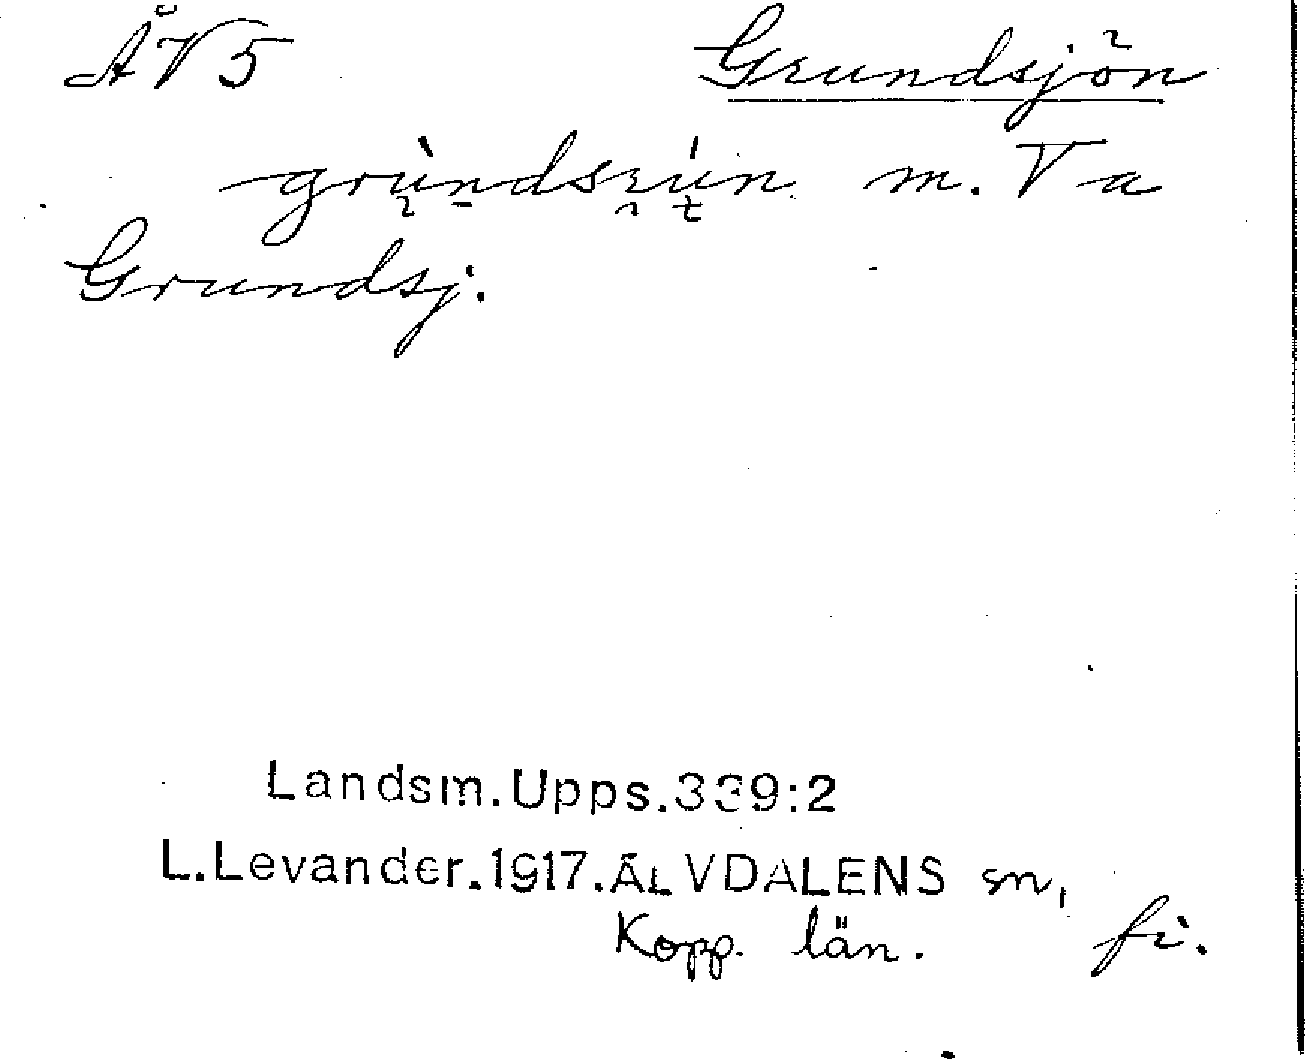 ÄV5 Grundsjön
grùndsɛún m. Va
Grundsj.
Landsm.Upps.339:2
L.Levander.1917.ÄLVDALENS sn,
Kopp. län. fi.